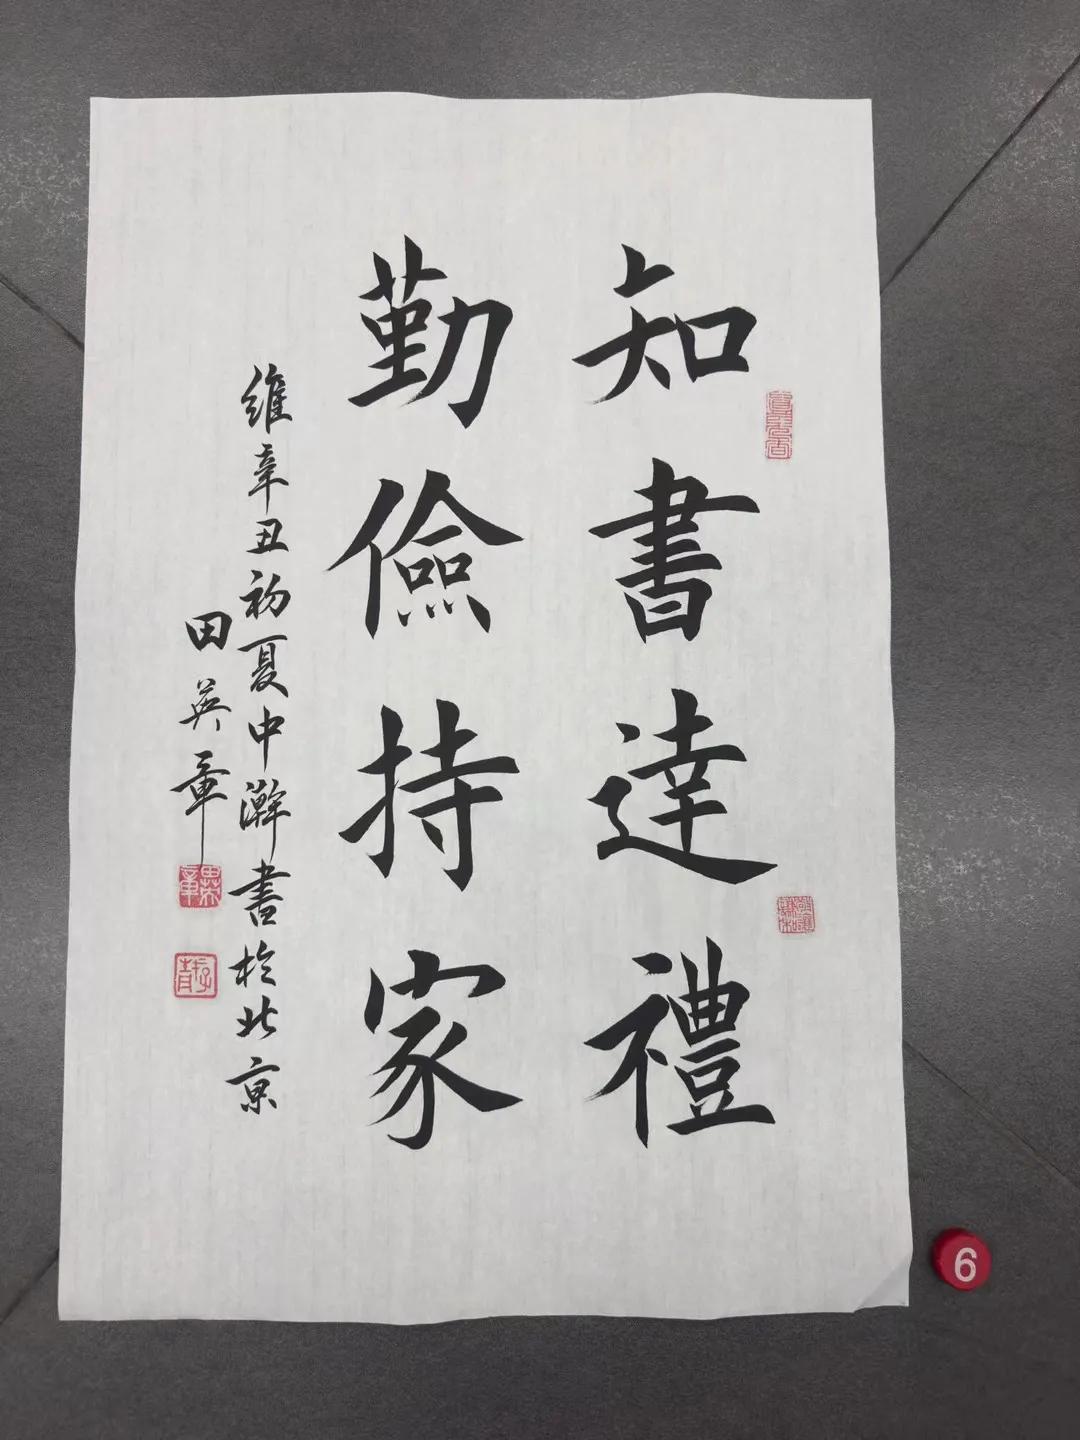 知書達禮
勤儉持家
維辛丑初夏中澣書於北京
田英章
6